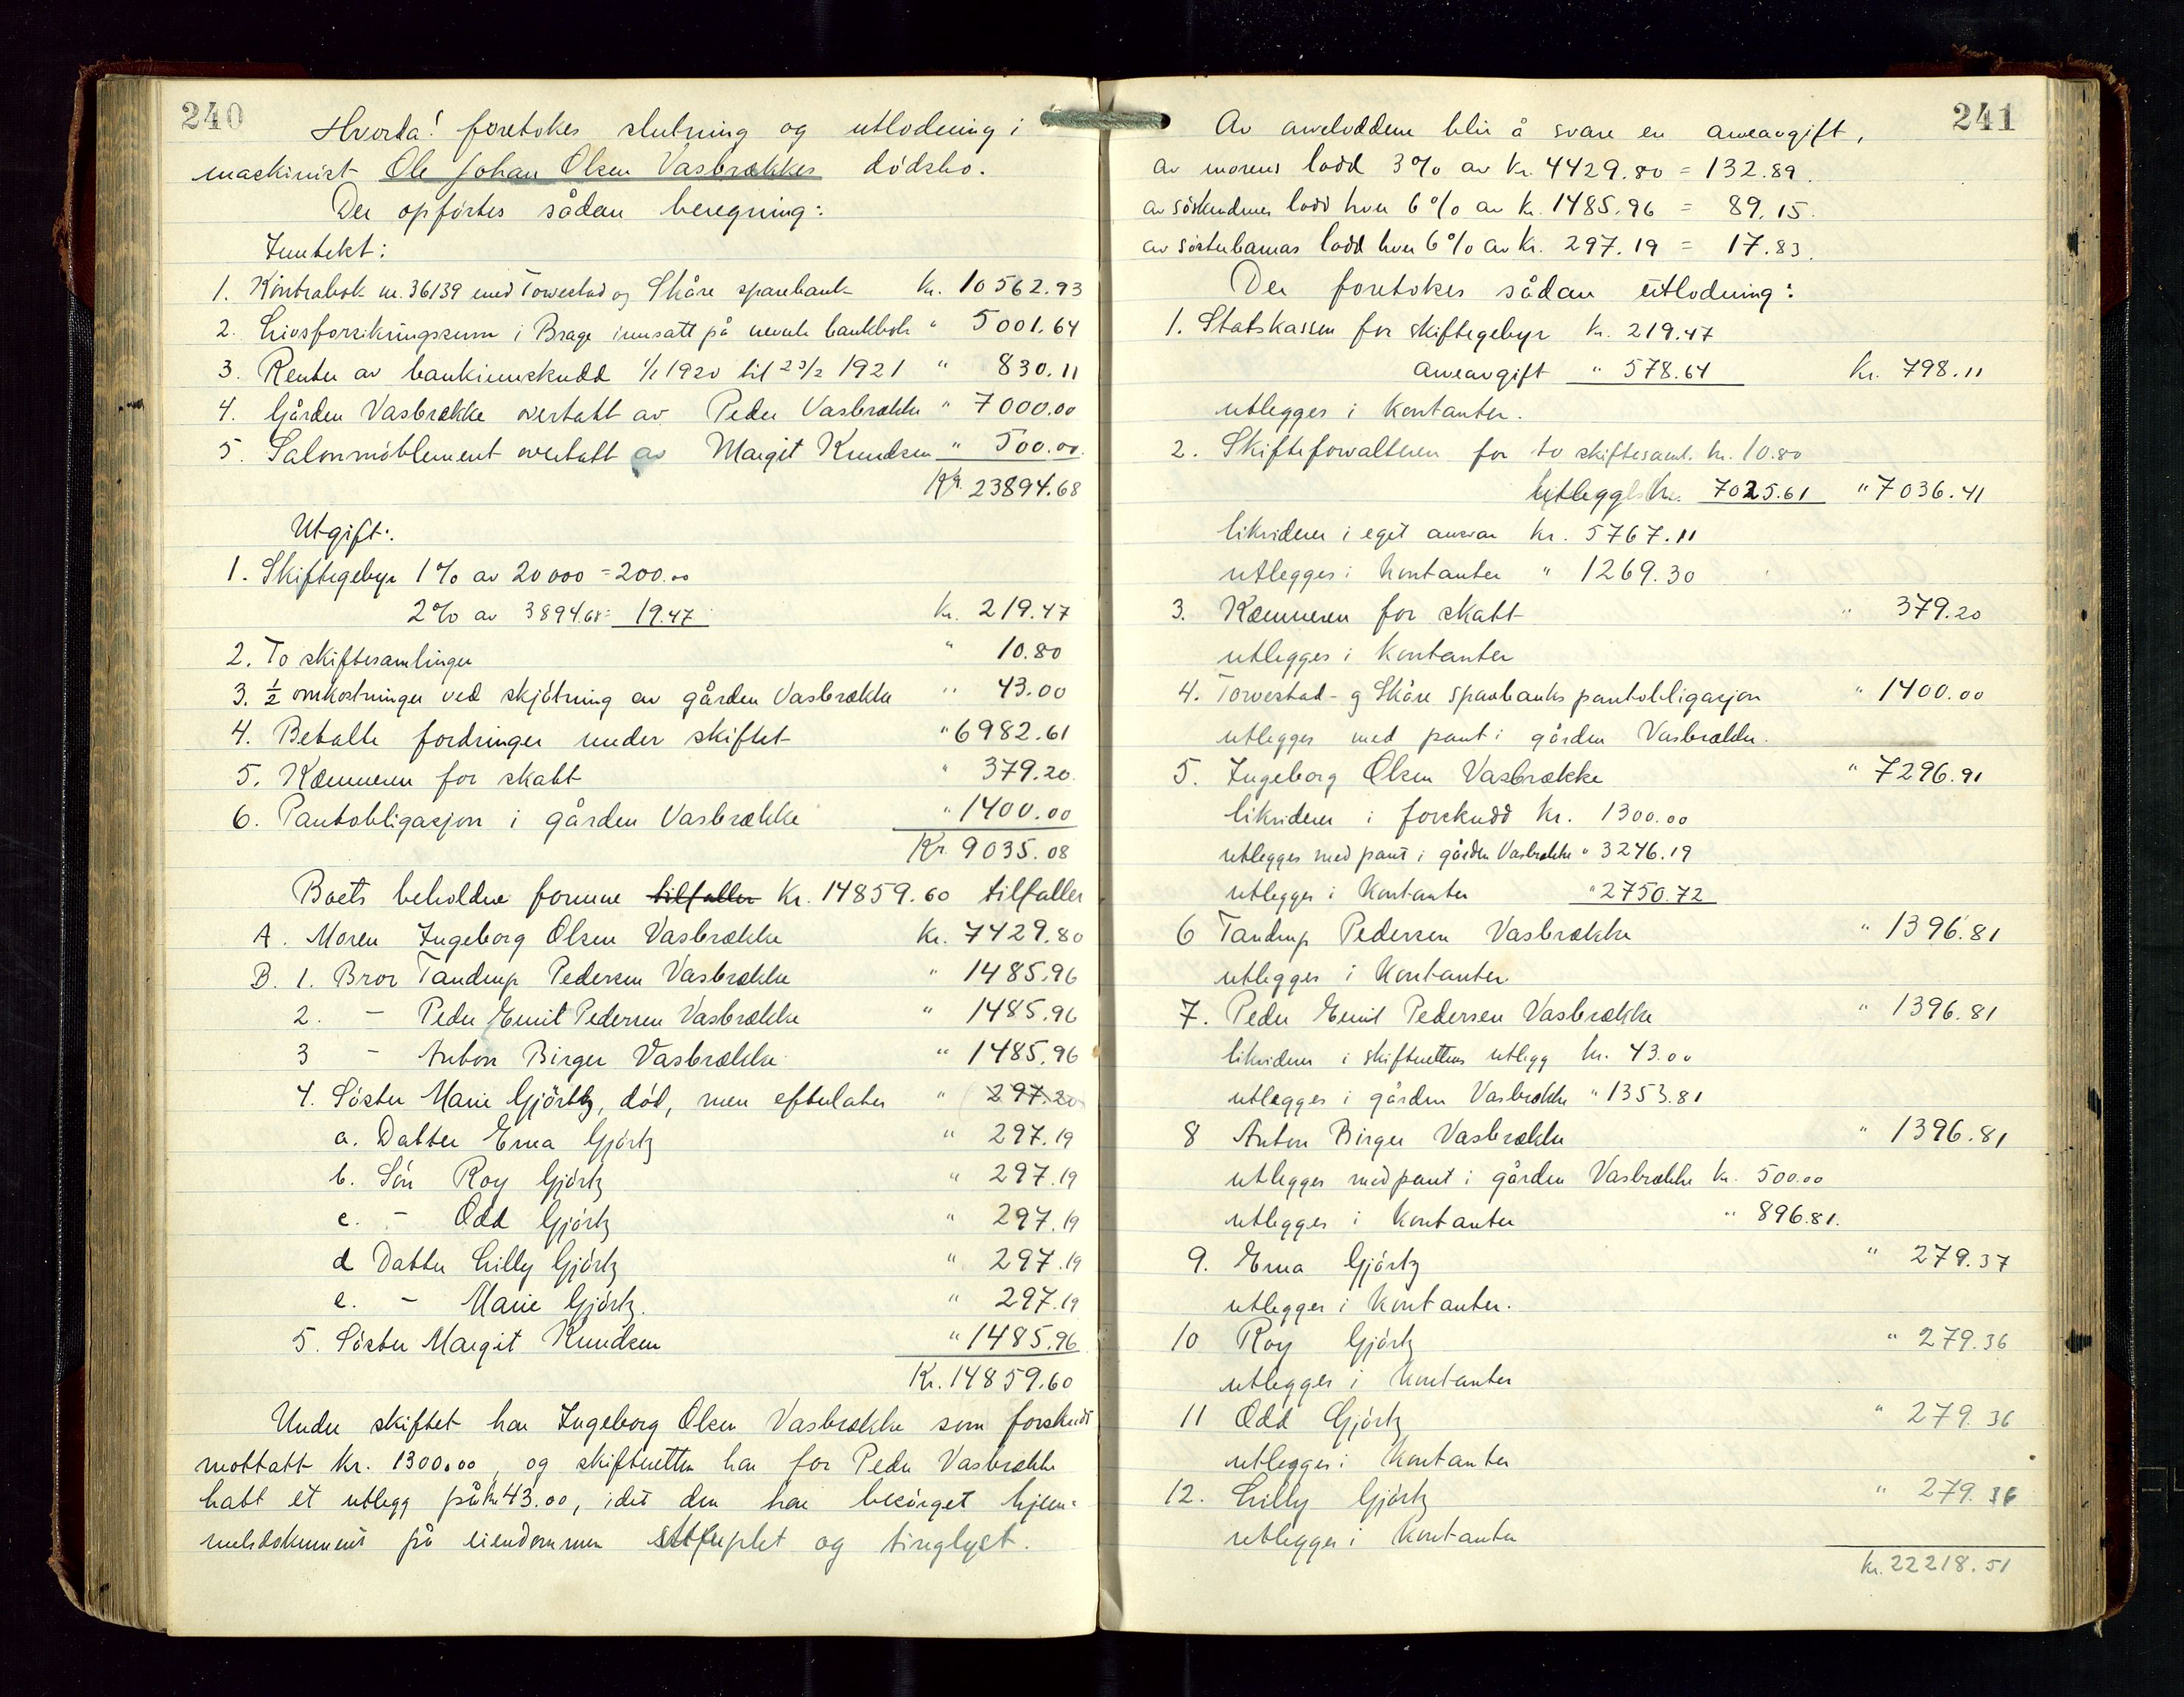 240
Hvorda! foretokes slutning og utlodning i
maskinist Ole Johan Olsen Vasbrækkes dödsbo.
Der opförtes sådan beregning:
Inntekt:
1. Kontrabok nr. 36139 med Torvestad og Skåre sparebank kr. 10562.93
2. Livsforsikringssum i Brage innsatt på nevnte bankbok " 5001.64
3. Renter av bankinnskudd 1/1 1920 til 23/2 1921 " 830.11
4. Gården Vasbrække overtatt av Peder Vasbrække " 7000.00
5. Salonmöblement overtatt av Margit Knudsen " 500.00
Kr. 23894.68
Utgift:
1. Skiftegebyr 1% av 20000 = 200.00
2% av 3894.68 = 19.47 kr. 219.47
2. To skiftesamlinger " 10.80
3. ½ omkostninger ved skjötning av gården Vasbrække " 43.00
4. Betalte fordringer under skiftet " 6982.61
5. Kæmneren for skatt " 379.20
6. Pantobligasjon i gården Vasbrække " 1400.00
Kr. 9035.08
Boets beholdne formue tilfaller Kr. 14859.60 tilfaller
A. Moren Ingeborg Olsen Vasbrække Kr. 7429.80
B. 1. Bror Tandrup Pedersen Vasbrække " 1485.96
2. - Peder Emil Pedersen Vasbrække " 1485.96
3 - Anton Birger Vasbrække " 1485.96
4. Söster Marie Gjörtz, död, men efterlater " 297.20
a. Datter Erna Gjörtz " 297.19
b. Sön Roy Gjörtz " 297.19
c. - Odd Gjörtz " 297.19
d Datter Lilly Gjörtz " 297.19
e. - Marie Gjörtz. " 297.19
5. Söster Margit Knudsen " 1485.96
Kr. 14859.60
Under skiftet har Ingeborg Olsen Vasbrække som forskudd
mottatt Kr. 1300.00, og skifteretten har for Peder Vasbrække
hatt et utlegg på kr 43.00, idet den har besörget hjem-
melsdokument på eiendommen stemplet og tinglyst.
241
Av arveloddene blir å svare en arveavgift,
av morens lodd 3% av Kr. 4429.80 = 132.89.
av söskendenes lodd hver 6% av kr. 1485.96 = 89.15.
av sösterbarnas lodd hver 6% av Kr. 297.19 = 17.83.
Der foretokes sådan utlodning:
1. Statskassen for skiftegebyr kr. 219.47
arveavgift " 578.64 Kr. 798.11
utlegges i kontanter.
2. Skifteforvalteren for to skiftesaml. kr. 10.80
utlegg kr. 7025.61 " 7036.41
likviderer i eget ansvar kr. 5767.11
utlegges i kontanter " 1269.30
3. Kæmneren for skatt " 379.20
utlegges i kontanter
4. Torvestad- og Skåre sparebanks pantobligasjon " 1400.00
utlegges med pant i gården Vasbrække.
5. Ingeborg Olsen Vasbrække " 7296.91
likviderer i forskudd kr. 1300.00
utlegges med pant i gården Vasbrække " 3246.19
utlegges i kontanter " 2750.72
6 Tandrup Pedersen Vasbrække " 1396.81
utlegges i kontanter
7. Peder Emil Pedersen Vasbrække " 1396.81
likviderer i skifterettens utlegg kr. 43.00
utlegges i gården Vasbrække " 1353.81
8 Anton Birger Vasbrække " 1396.81
utlegges med pant i gården Vasbrække kr. 500.00
utlegges i kontanter " 896.81.
9. Erna Gjörtz " 279.37
utlegges i kontanter.
10 Roy Gjörtz " 279.36
utlegges i kontanter
11 Odd Gjörtz " 279.36
utlegges i kontanter
12. Lilly Gjörtz " 279.36
utlegges i kontanter
kr. 22218.51